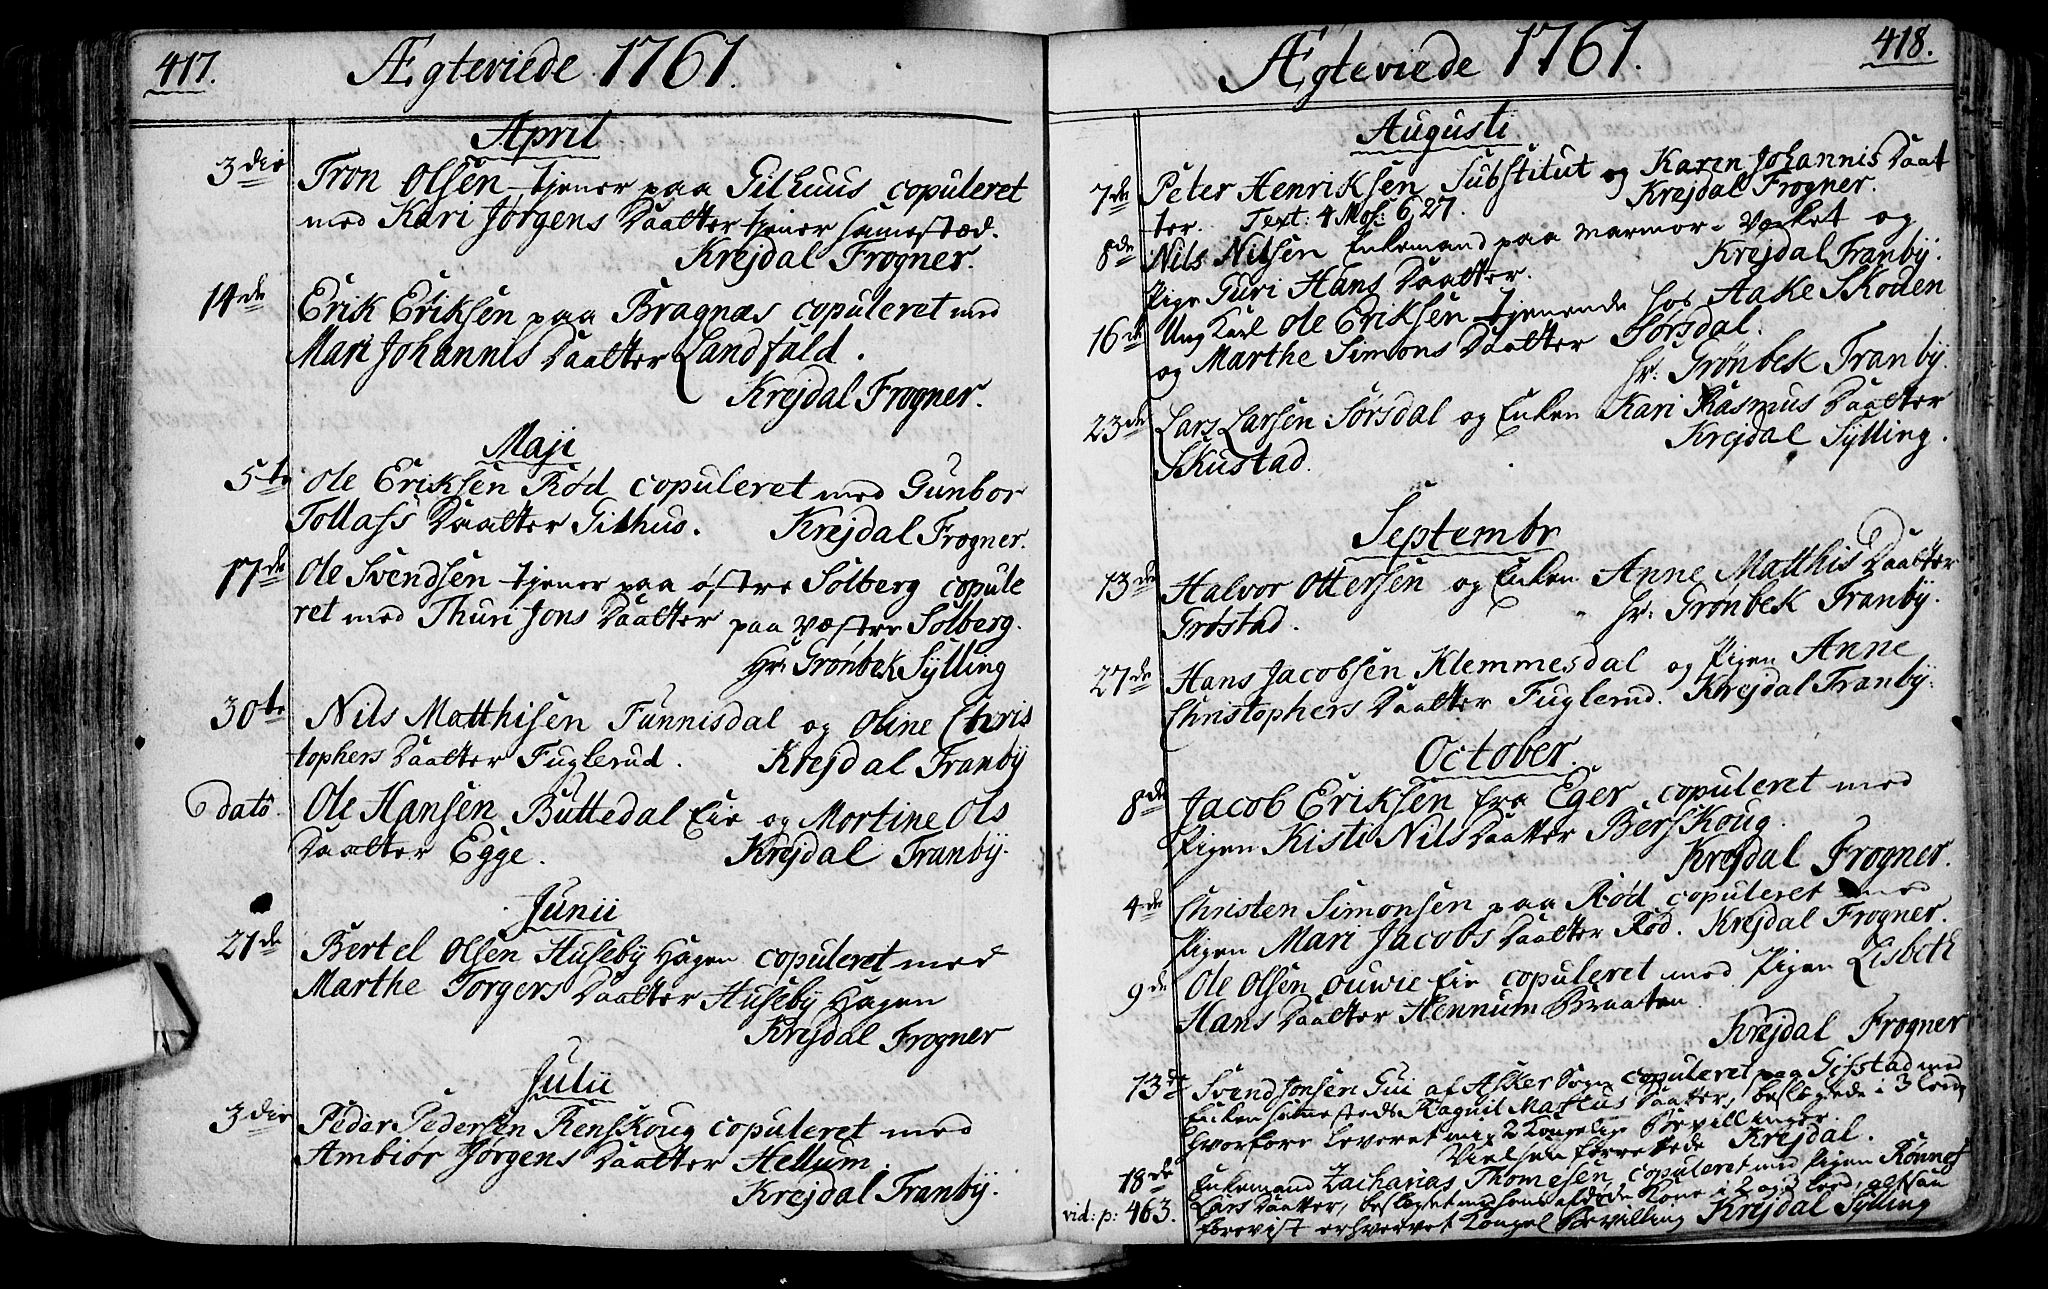 417.
Ægteviede 1761.
April
3die Tron Olsen tjener paa Gilhuus copuleret
med Kari Jørgens Daatter tjener sammestæd.
Krejdal Frogner.
14de Erik Eriksen paa Bragnæs copuleret med
Mari Johannis Daatter Landfald.
Krejdal Frogner.
Maji
5te Ole Eriksen Rød copuleret med Gunbor
Tollafs Daatter Gilhus. Krejdal Frogner.
17de Ole Svendsen tjener paa østre Solberg copule
ret med Thuri Jons Daatter paa væstre Solberg.
Hr: Grønbek Sylling
30te Nils Matthisen Funnisdal og Oline Chris
tophers Daatter Fuglerud. Krejdal Franby
dato. Ole Hansen Buttedal Eie og Mortine Ols
Daatter Egge. Krejdal Franby.
Junii
21de Bertel Olsen Huseby Hagen copuleret med
Marthe Torgers Daatter Huseby Hagen
Krejdal Frogner
Julii
3die Peder Pedersen Renskoug copuleret med
Ambiør Jørgens Daatter Hellum.
Krejdal Franby.
418.
Ægteviede 1761.
Augusti
7de Peter Henriksen Substitut og Karen Johannis Daat
ter. Text: 4 Mos: 6, 27. Krejdal Frogner.
8de Nils Nilsen Enkemand paa Marmor-Værket og
Pige Guri Hans Daatter. Krejdal Franby.
16de Ung Karl Ole Eriksen tjenende hos Aake Skoden
og Marthe Simons Daatter Sørsdal.
Hr: Grønbek Franby.
23de Lars Larsen Sørsdal og Enken Kari Rasmus Daatter
Skustad. Krejdal Sylling.
Septembr
13de Halvor Ottersen og Enken Anne Matthis Daatter
Grøstad. Hr: Grønbek Franby.
27de Hans Jacobsen Klemmesdal og Pigen Anne
Christophers Daatter Fuglerud. Krejdal Franby.
October.
8de Jacob Eriksen fra Eger copuleret med
Pigen Kisti Nils Daatter Berskoug.
Krejdal Frogner.
4de Christen Simonsen paa Rød copuleret med
Pigen Mari Jacobs Daatter Rød. Krejdal Frogner.
9de Ole Olsen Ouwie Eie copuleret med Pigen Lisbeth
Hans Daatter Hennum Braaten.
Krejdal Frogner
13de Svend Jonsen Gui af Asker Sogn copuleret paa Gifstad med
Enken sammesteds Raguil Mattis Daatter, beslegtede i 3 Leed,
hvorfore leveret mig 2 Kongelige Bevillinger.
Vielsen forrettede Krejdal.
18de Enkemand Zacharias Thomesen copuleret med Pigen Rønnef
Lars Daatter, beslegtet med hans afdøde Kone i 2 og 3 Leed,
vid: p: 463. forevist erhvervet Kongel Bevilling Krejdal Sylling